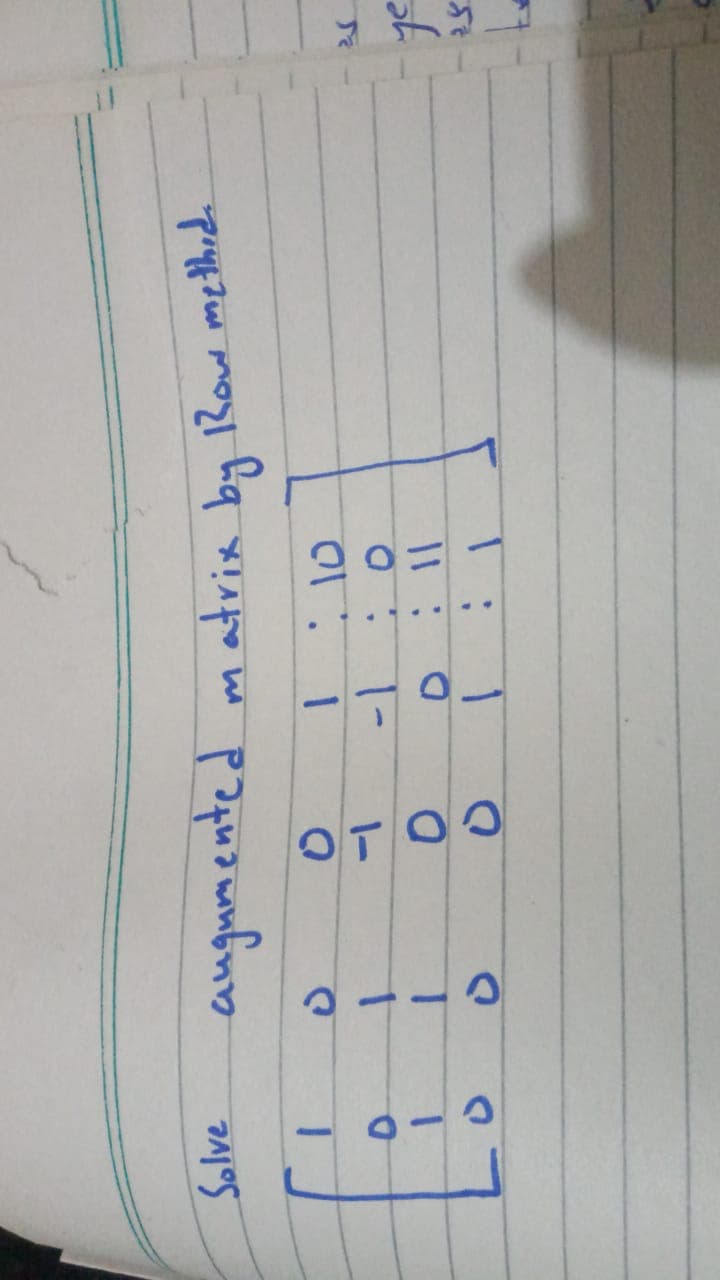 Solve augumented matrix by Row method.
1 0 0 1 : 10
0 1 -1 -1 : 0
1 1 0 0 : 11
0 0 0 1 : 1